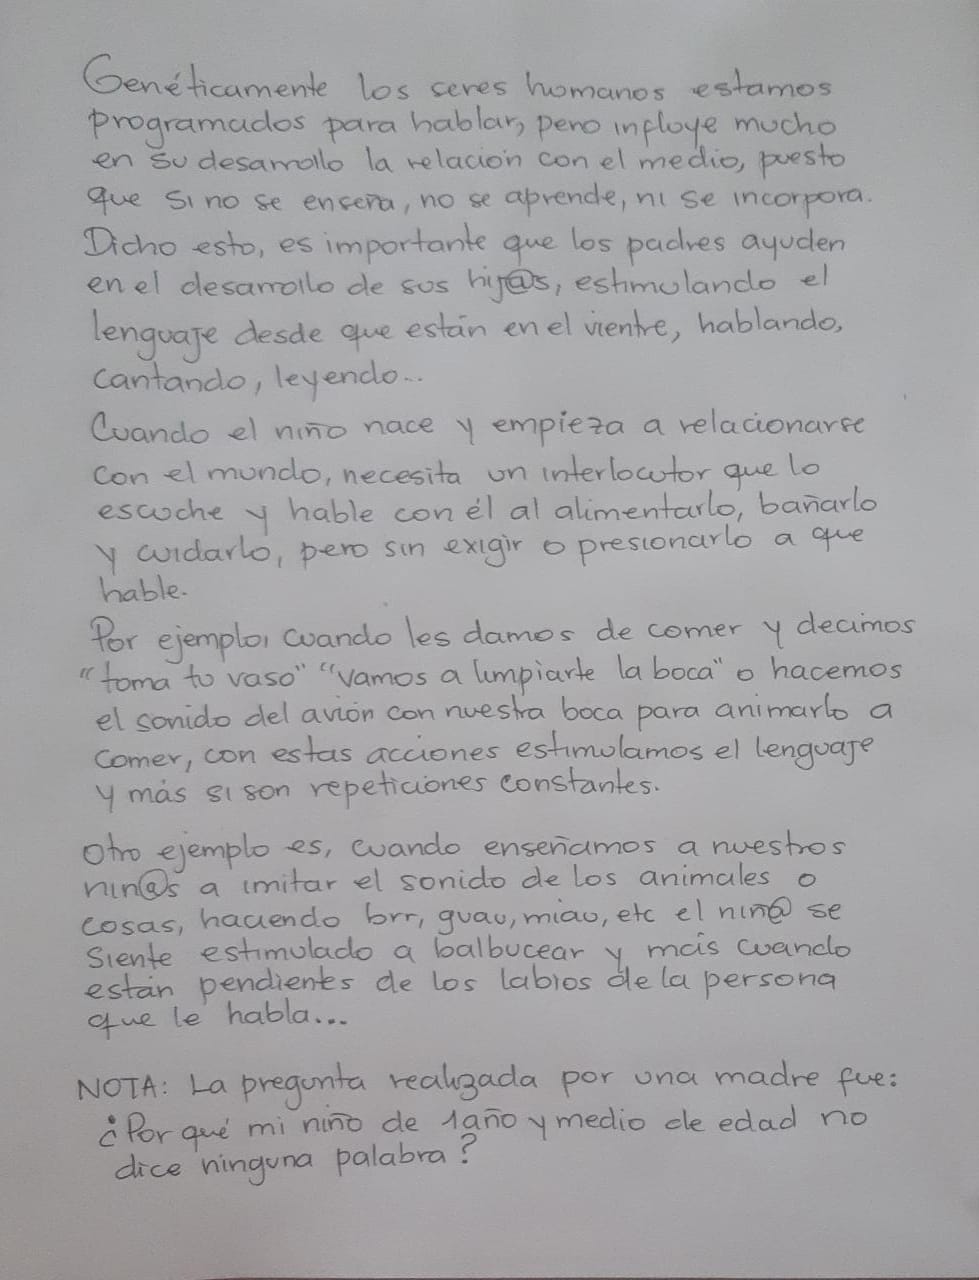 Genéticamente los seres humanos estamos
programados para hablar, pero influye mucho
en su desarrollo la relación con el medio, puesto
que si no se enseña, no se aprende, ni se incorpora.
Dicho esto, es importante que los padres ayuden
en el desarrollo de sus hij@s, estimulando el
lenguaje desde que están en el vientre, hablando,
cantando, leyendo...
Cuando el niño nace y empieza a relacionarse
con el mundo, necesita un interlocutor que lo
escuche y hable con él al alimentarlo, bañarlo
y cuidarlo, pero sin exigir o presionarlo a que
hable.
Por ejemplo, cuando les damos de comer y decimos
"toma tu vaso" "vamos a limpiarte la boca" o hacemos
el sonido del avión con nuestra boca para animarlo a
comer, con estas acciones estimulamos el lenguaje
y más si son repeticiones constantes.
Otro ejemplo es, cuando enseñamos a nuestros
niñ@s a imitar el sonido de los animales o
cosas, haciendo brr, guau, miau, etc el niñ@ se
siente estimulado a balbucear y más cuando
están pendientes de los labios de la persona
que le habla...
NOTA: La pregunta realizada por una madre fue:
¿Por qué mi niño de 1año y medio de edad no
dice ninguna palabra?